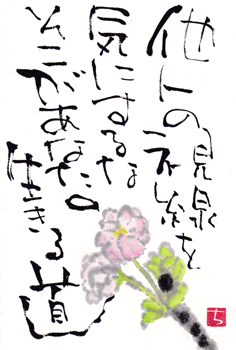 他人の視線を
気にするな
そこがあなたの
生きる道
ち